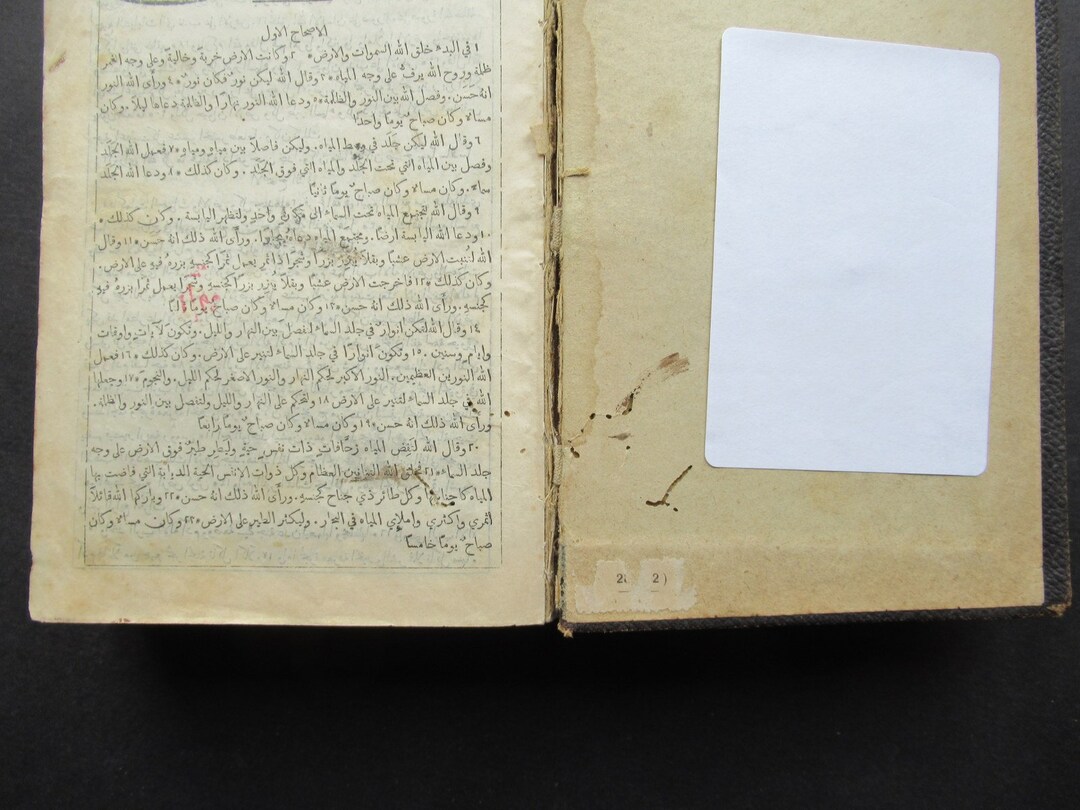 الاصحاح الاول
١ في البدء خلق الله السموات والارض * ٢ وكانت الارض خربة وخالية وعلى وجه الغمر
ظلمة وروح الله يرف على وجه المياه * ٣ وقال الله ليكن نور فكان نور * ٤ ورأى الله النور
انه حسن . وفصل الله بين النور والظلمة * ٥ ودعا الله النور نهارًا والظلمة دعاها ليلاً . وكان
مساء وكان صباح يومًا واحدًا
٦ وقال الله ليكن جلد في وسط المياه . وليكن فاصلاً بين مياه ومياه * ٧ فعمل الله الجلد
وفصل بين المياه التي تحت الجلد والمياه التي فوق الجلد . وكان كذلك * ٨ ودعا الله الجلد
سماء . وكان مساء وكان صباح يومًا ثانيًا
٩ وقال الله لتجتمع المياه تحت السماء الى مكان واحد ولتظهر اليابسة . وكان كذلك *
١٠ ودعا الله اليابسة ارضًا . ومجتمع المياه دعاه بحارًا . ورأى الله ذلك انه حسن * ١١ وقال
الله لتنبت الارض عشبًا وبقلاً يبزر بزرًا وشجرًا ذا ثمر يعمل ثمرًا كجنسه بزره فيه على الارض .
وكان كذلك * ١٢ فاخرجت الارض عشبًا وبقلاً يبزر بزرًا كجنسه وشجرًا يعمل ثمرًا بزره فيه
كجنسه . ورأى الله ذلك انه حسن * ١٣ وكان مساء وكان صباح يومًا ثالثًا
١٤ وقال الله لتكن انوار في جلد السماء لتفصل بين النهار والليل . وتكون لآيات واوقات
وايام وسنين * ١٥ وتكون انوارًا في جلد السماء لتنير على الارض . وكان كذلك * ١٦ فعمل
الله النورين العظيمين . النور الاكبر لحكم النهار والنور الاصغر لحكم الليل . والنجوم * ١٧ وجعلها
الله في جلد السماء لتنير على الارض ١٨ ولتحكم على النهار والليل ولتفصل بين النور والظلمة .
ورأى الله ذلك انه حسن * ١٩ وكان مساء وكان صباح يومًا رابعًا
٢٠ وقال الله لتفض المياه زحافات ذات نفس حية وليطر طير فوق الارض على وجه
جلد السماء * ٢١ فخلق الله التنانين العظام وكل ذوات الانفس الحية الدبابة التي فاضت بها
المياه كاجناسها وكل طائر ذي جناح كجنسه . ورأى الله ذلك انه حسن * ٢٢ وباركها الله قائلاً
اثمري واكثري واملإي المياه في البحار . وليكثر الطير على الارض * ٢٣ وكان مساء وكان
صباح يومًا خامسًا
2 2 )